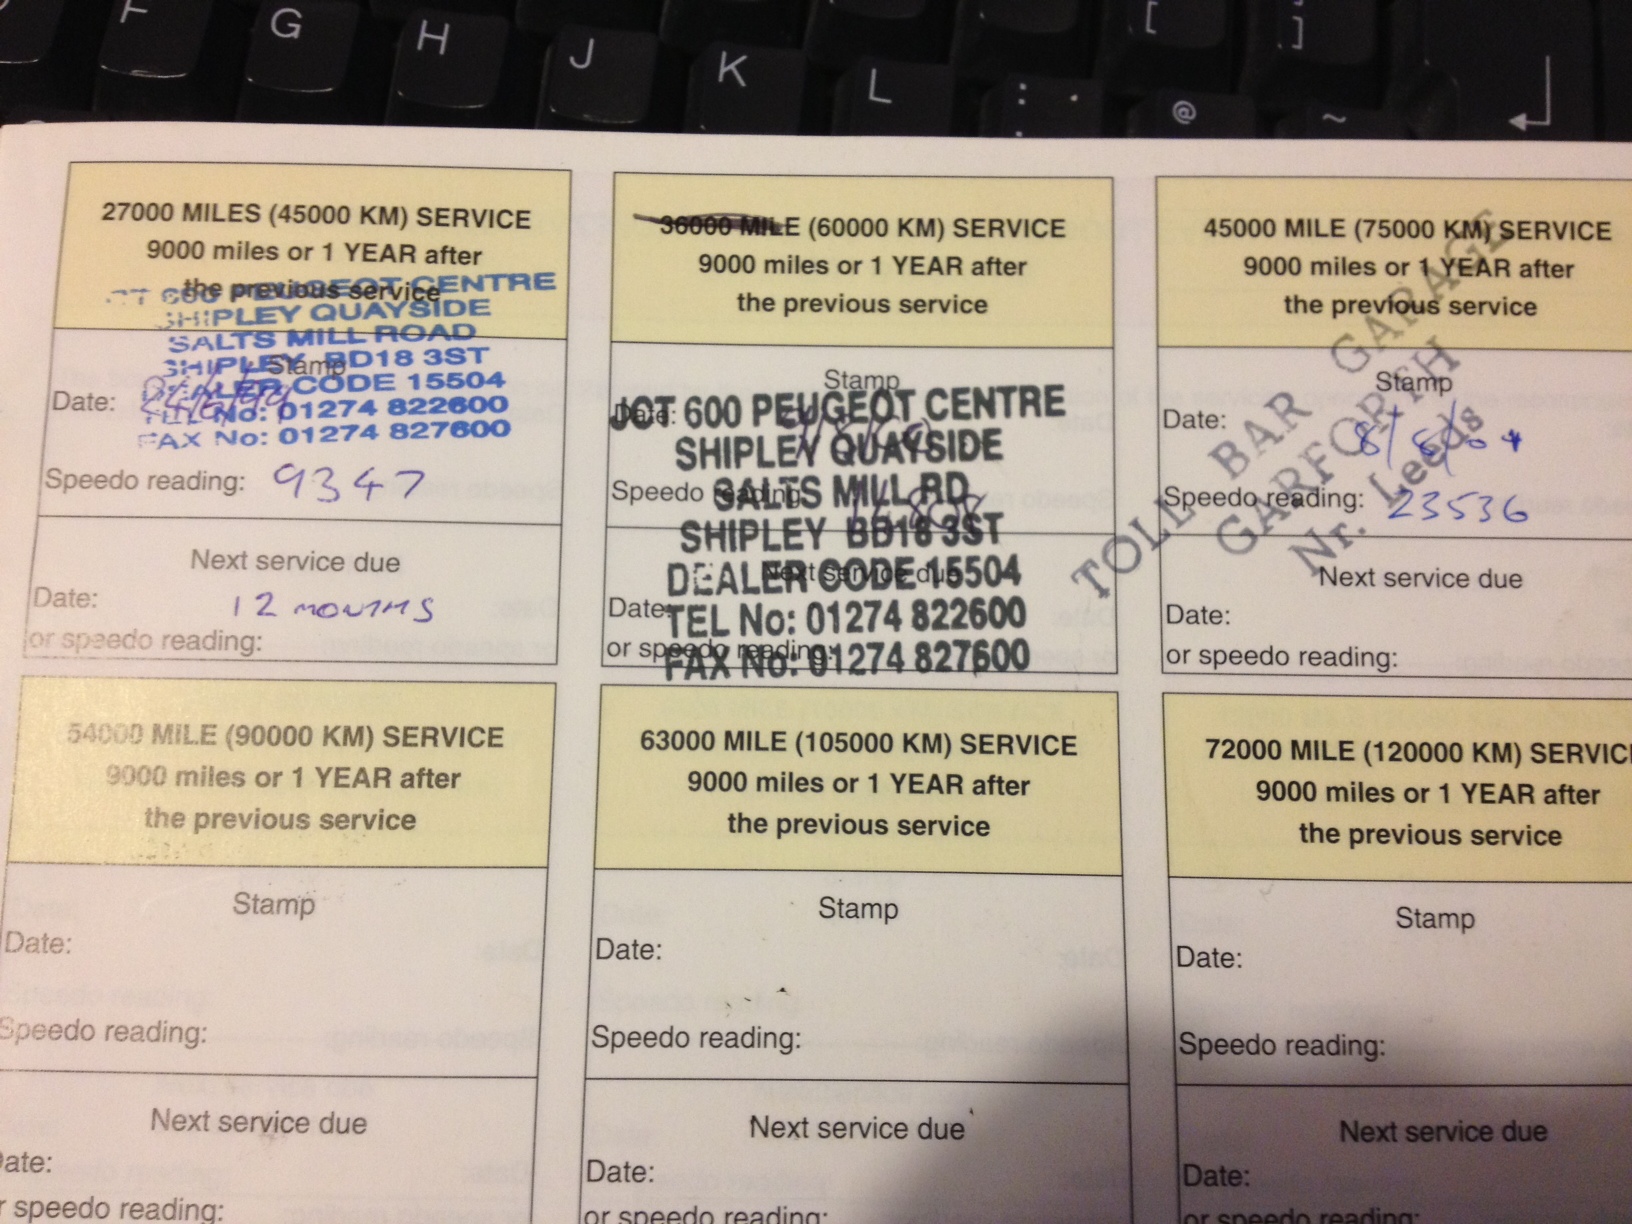 F G H J K L : ; @ ~ [ ]
27000 MILES (45000 KM) SERVICE
9000 miles or 1 YEAR after
the previous service
PEUGEOT CENTRE
SHIPLEY QUAYSIDE
SALTS MILL ROAD
SHIPLEY BD18 3ST
Stamp
DEALER CODE 15504
Date:
TEL No: 01274 822600
FAX No: 01274 827600
Speedo reading: 9347
Next service due
Date: 12 MONTHS
or speedo reading:
36000 MILE (60000 KM) SERVICE
9000 miles or 1 YEAR after
the previous service
Stamp
Date:
JCT 600 PEUGEOT CENTRE
SHIPLEY QUAYSIDE
Speedo reading:
SALTS MILL RD
SHIPLEY BD18 3ST
Next service due
DEALER CODE 15504
Date:
TEL No: 01274 822600
or speedo reading:
FAX No: 01274 827600
45000 MILE (75000 KM) SERVICE
9000 miles or 1 YEAR after
the previous service
TOLL BAR GARAGE
GARFORTH
Nr. Leeds
Stamp
Date: 8/8/04
Speedo reading: 23536
Next service due
Date:
or speedo reading:
54000 MILE (90000 KM) SERVICE
9000 miles or 1 YEAR after
the previous service
Stamp
Date:
Speedo reading:
Next service due
Date:
or speedo reading:
63000 MILE (105000 KM) SERVICE
9000 miles or 1 YEAR after
the previous service
Stamp
Date:
Speedo reading:
Next service due
Date:
or speedo reading:
72000 MILE (120000 KM) SERVIC
9000 miles or 1 YEAR after
the previous service
Stamp
Date:
Speedo reading:
Next service due
Date:
or speedo reading: